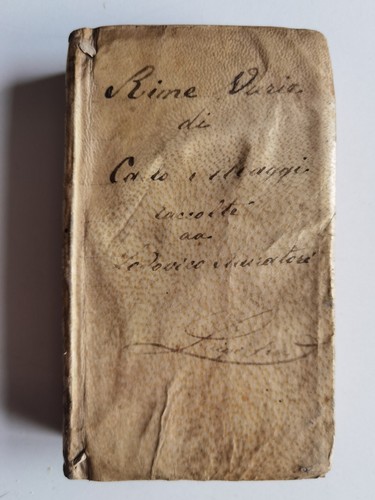 Rime Varie
di
Carlo Maggi
raccolte
da
Lodovico Muratori